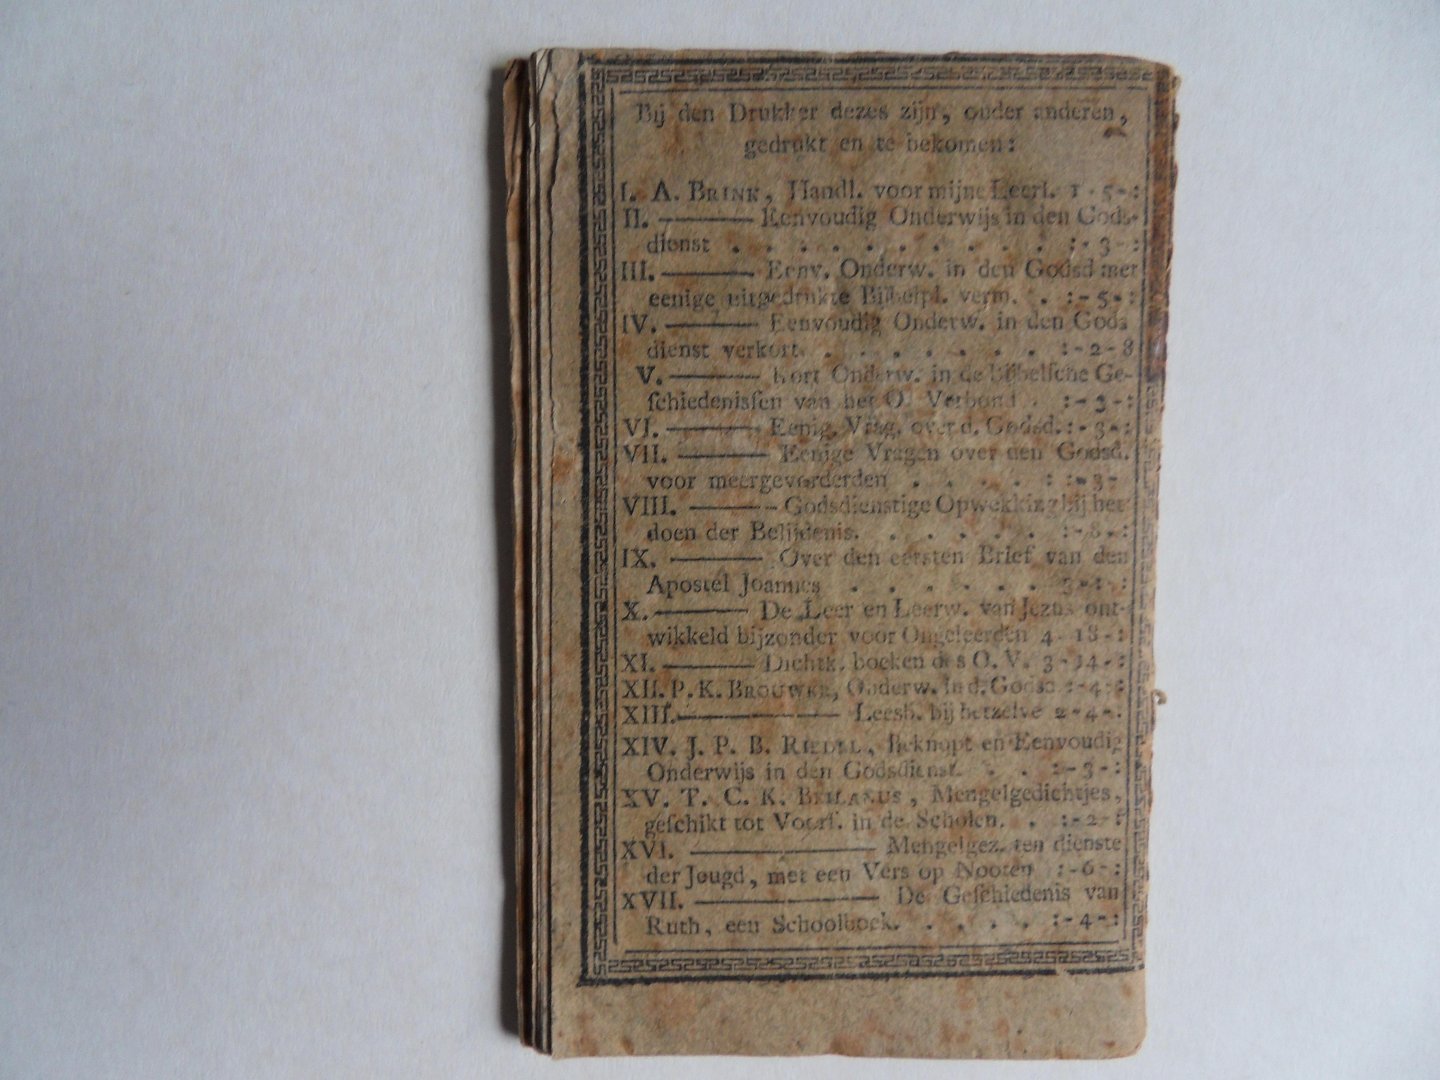 Bij den Drukker dezes zijn, onder anderen,
gedrukt en te bekomen:
I. A. BRINK, Handl. voor mijne Leerl. 1-5-:
II. ——— Eenvoudig Onderwijs in den Gods-
dienst . . . . . . . . . . :-3-:
III. ——— Eenv. Onderw. in den Godsd met
eenige uitgedrukte Bijbelpl. verm. . :-5-:
IV. ——— Eenvoudig Onderw. in den Gods
dienst verkort. . . . . . . . :-2-8
V. ——— Kort Onderw. in de Bijbelſche Ge-
ſchiedenisſen van het O. Verbond . :-3-:
VI. ——— Eenig. Vrag. over d. Godsd. :-3-:
VII. ——— Eenige Vragen over den Godsd.
voor meergevorderden . . . . : :-3-
VIII. ——— Godsdienstige Opwekking bij het
doen der Belijdenis. . . . . . . :-8-:
IX. ——— Over den eersten Brief van den
Apostel Joannes . . . . . . 3-4-:
X. ——— De Leer en Leerw. van Jezus ont-
wikkeld bijzonder voor Ongeleerden 4-18-:
XI. ——— Dichtk. boeken des O. V. 3-14-:
XII. P. K. BROUWER, Onderw. in d. Godsd :-4-:
XIII. ——— Leesb. bij hetzelve 2-4-:
XIV. J. P. B. RIEDEL, Beknopt en Eenvoudig
Onderwijs in den Godsdienst. . . :-3-:
XV. T. C. K. BEILANUS, Mengelgedichtjes,
geſchikt tot Voorſ. in de Scholen. . :-2-:
XVI. ——— Mengelgez. ten dienste
der Jeugd, met een Vers op Nooten :-6-:
XVII. ——— De Geſchiedenis van
Ruth, een Schoolboek. . . . . :-4-: